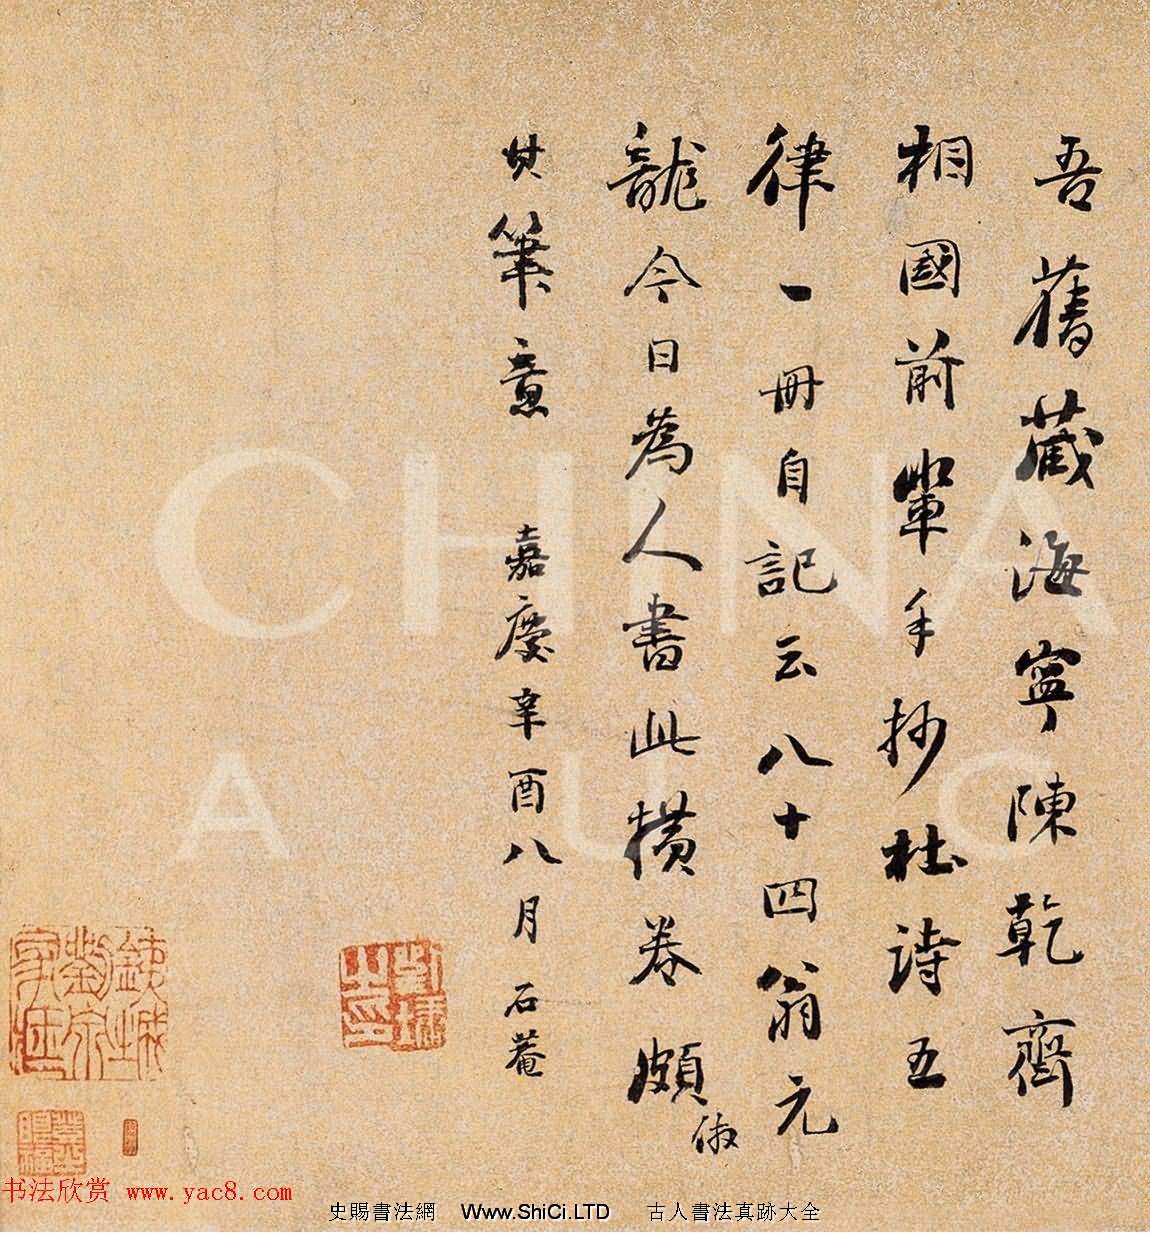 吾舊藏海寧陳乾齋
相國前輩手抄杜詩五
律一冊自記云八十四翁元
龍今日為人書此橫卷頗
倣
其筆意 嘉慶辛酉八月 石菴
劉墉之印
CHINA
书法欣赏 www.yac8.com
史賜書法網 Www.ShiCi.LTD 古人書法真跡大全